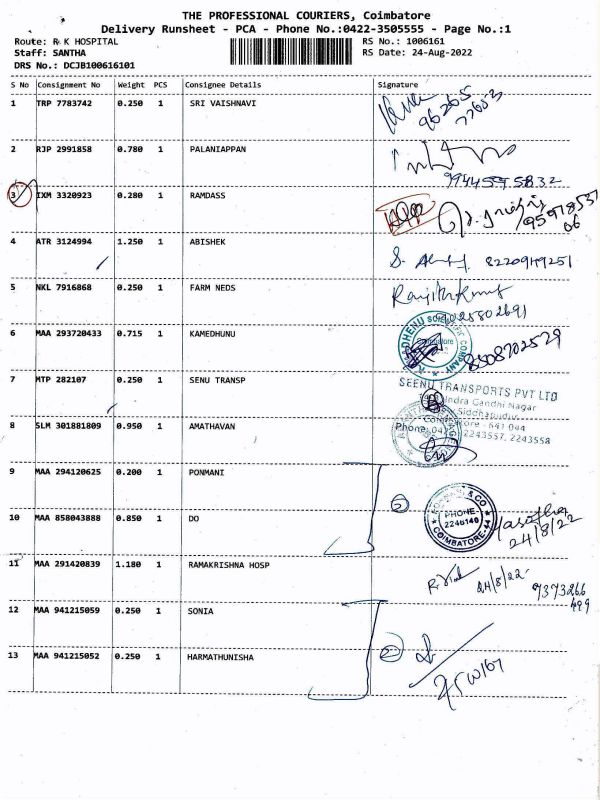 THE PROFESSIONAL COURIERS, Coimbatore
Delivery Runsheet - PCA - Phone No.:0422-3505555 - Page No.:1
Route: R K HOSPITAL RS No.: 1006161
Staff: SANTHA RS Date: 24-Aug-2022
DRS No.: DCJB100616101
S No Consignment No Weight PCS Consignee Details Signature
1 TRP 7783742 0.250 1 SRI VAISHNAVI
96265
77603
2 RJP 2991858 0.780 1 PALANIAPPAN
9944595832
3 IXM 3320923 0.280 1 RAMDASS
06
4 ATR 3124994 1.250 1 ABISHEK
8220949251
5 NKL 7916868 0.250 1 FARM NEDS
Ranjithkumar
9025802691
6 MAA 293720433 0.715 1 KAMEDHUNU
8508702529
7 MTP 282107 0.250 1 SENU TRANSP
SEENU TRANSPORTS PVT LTD
Gandhi Nagar
Siddhapudur
641 044
Phone: 2243557, 2243558
8 SLM 301881809 0.950 1 AMATHAVAN
9 MAA 294120625 0.200 1 PONMANI
2
& CO
PHONE
2246140
COIMBATORE-44
10 MAA 858043888 0.850 1 DO
24/8/22
11 MAA 291420839 1.180 1 RAMAKRISHNA HOSP
24/8/22
7373266
499
12 MAA 941215059 0.250 1 SONIA
2
13 MAA 941215052 0.250 1 HARMATHUNISHA